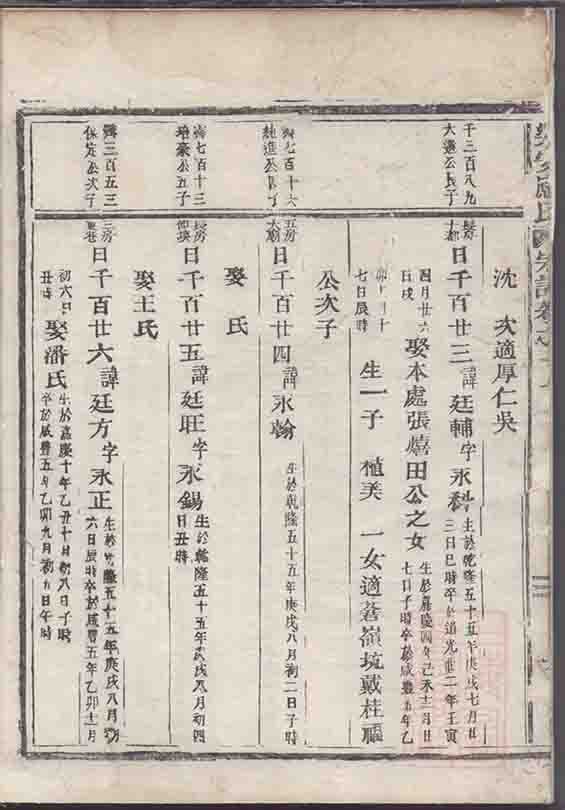 千三百八九
大進公長子
沈 次適厚仁吳
長房
日千百廿三諱廷輔字永科
生於乾隆五十五年庚戌七月廿
二日巳時卒於道光廿二年壬寅
四月廿六
日戌
娶本處張熺田公之女
生於嘉慶四年己未十二月廿
七日子時卒於咸豐五年乙
卯十月十
七日辰時
生一子 植美 一女適蒼嶺坑戴桂福
公次子
七百十六
純進公長子
五房
日千百廿四諱永翰
生於乾隆五十五年庚戌八月初二日子時
娶 氏
七百十三
瑃豪公五子
長房
日千百廿五諱廷旺字永錫
生於乾隆五十五年庚戌八月初四
日丑時
娶王氏
三百五三
保定公次子
三房
日千百廿六諱廷方字永正
生於乾隆五十五年庚戌八月初
六日辰時卒於咸豐五年乙卯十二月
初六日
丑時
娶潘氏
生於嘉慶十年乙丑十月初八日子時
卒於咸豐五年乙卯九月初五日午時